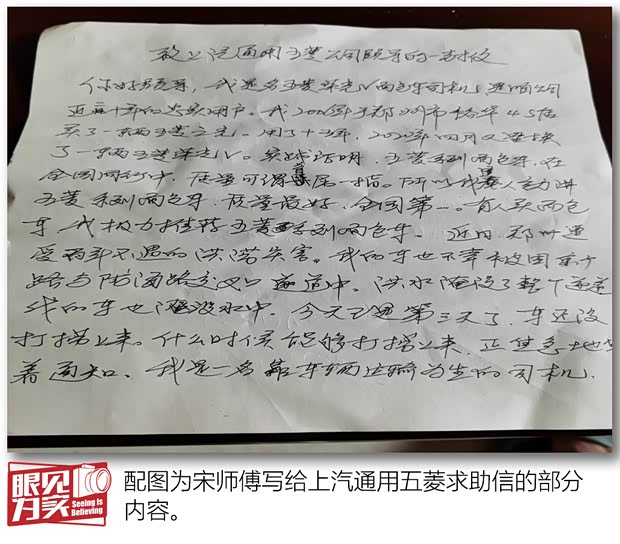 致上汽通用五菱公司领导的一封信
你好领导,我是名五菱荣光V面包车司机,是贵公司
近二十年的忠实用户。我2006年于郑州市裕华4S店
买了一辆五菱之光。用了十三年,2020年四月又替换
了一辆五菱荣光V。实践证明,五菱系列面包车,在
全国同行中,质量可谓首屈一指。所以我逢人主动讲
五菱系列面包车,质量最好,全国第一。有人买面包
车,我极力推荐五菱系列面包车。近日,郑州遭
受百年不遇的洪涝灾害。我的车也不幸被困京广
路与防汛路交叉口隧道中。洪水淹没了整个隧道
我的车也淹没水中。今天已是第三天了,车还没
打捞上来。什么时候能够打捞上来,正焦急地等
着通知。我是一名靠车辆运输为生的司机.
眼见为实
Seeing Is Believing
配图为宋师傅写给上汽通用五菱求助信的部分
内容。